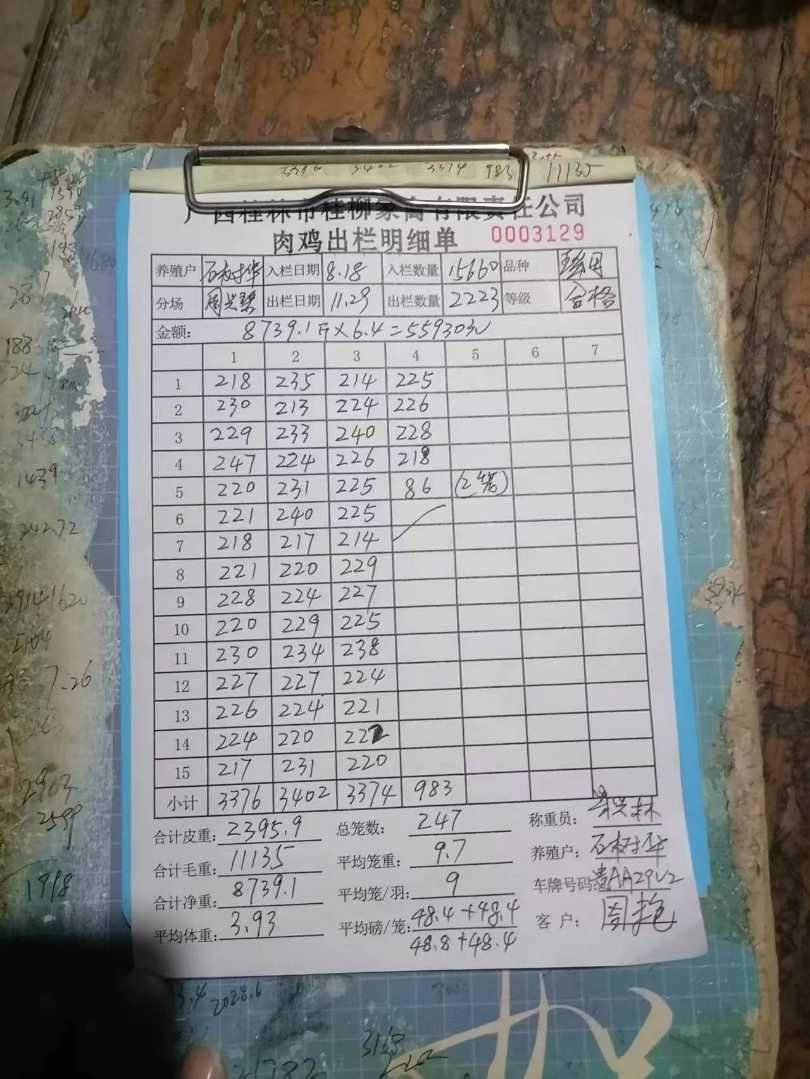 3376 3402 3374 983 11135
广西桂林市桂柳家禽有限责任公司
肉鸡出栏明细单 0003129
养殖户 石树华 入栏日期 8.18 入栏数量 15660 品种
分场 出栏日期 11.29 出栏数量 2223 等级 合格
金额: 8739.1斤×6.4=55930元
1 2 3 4 5 6 7
1 218 235 214 225
2 230 213 224 226
3 229 233 240 228
4 247 224 226 218
5 220 231 225 86 (2笼)
6 221 240 225
7 218 217 214
8 221 220 229
9 228 224 227
10 220 229 225
11 230 234 238
12 227 227 224
13 226 224 221
14 224 220 222
15 217 231 220
小计 3376 3402 3374 983
合计皮重: 2395.9 总笼数: 247 称重员:
合计毛重: 11135 平均笼重: 9.7 养殖户: 石树华
合计净重: 8739.1 平均笼/羽: 9 车牌号码:
平均体重: 3.93 平均磅/笼: 48.4+48.4 客户:
48.8+48.4
1439
24272
7.26
2903
2599
1998
2028.6